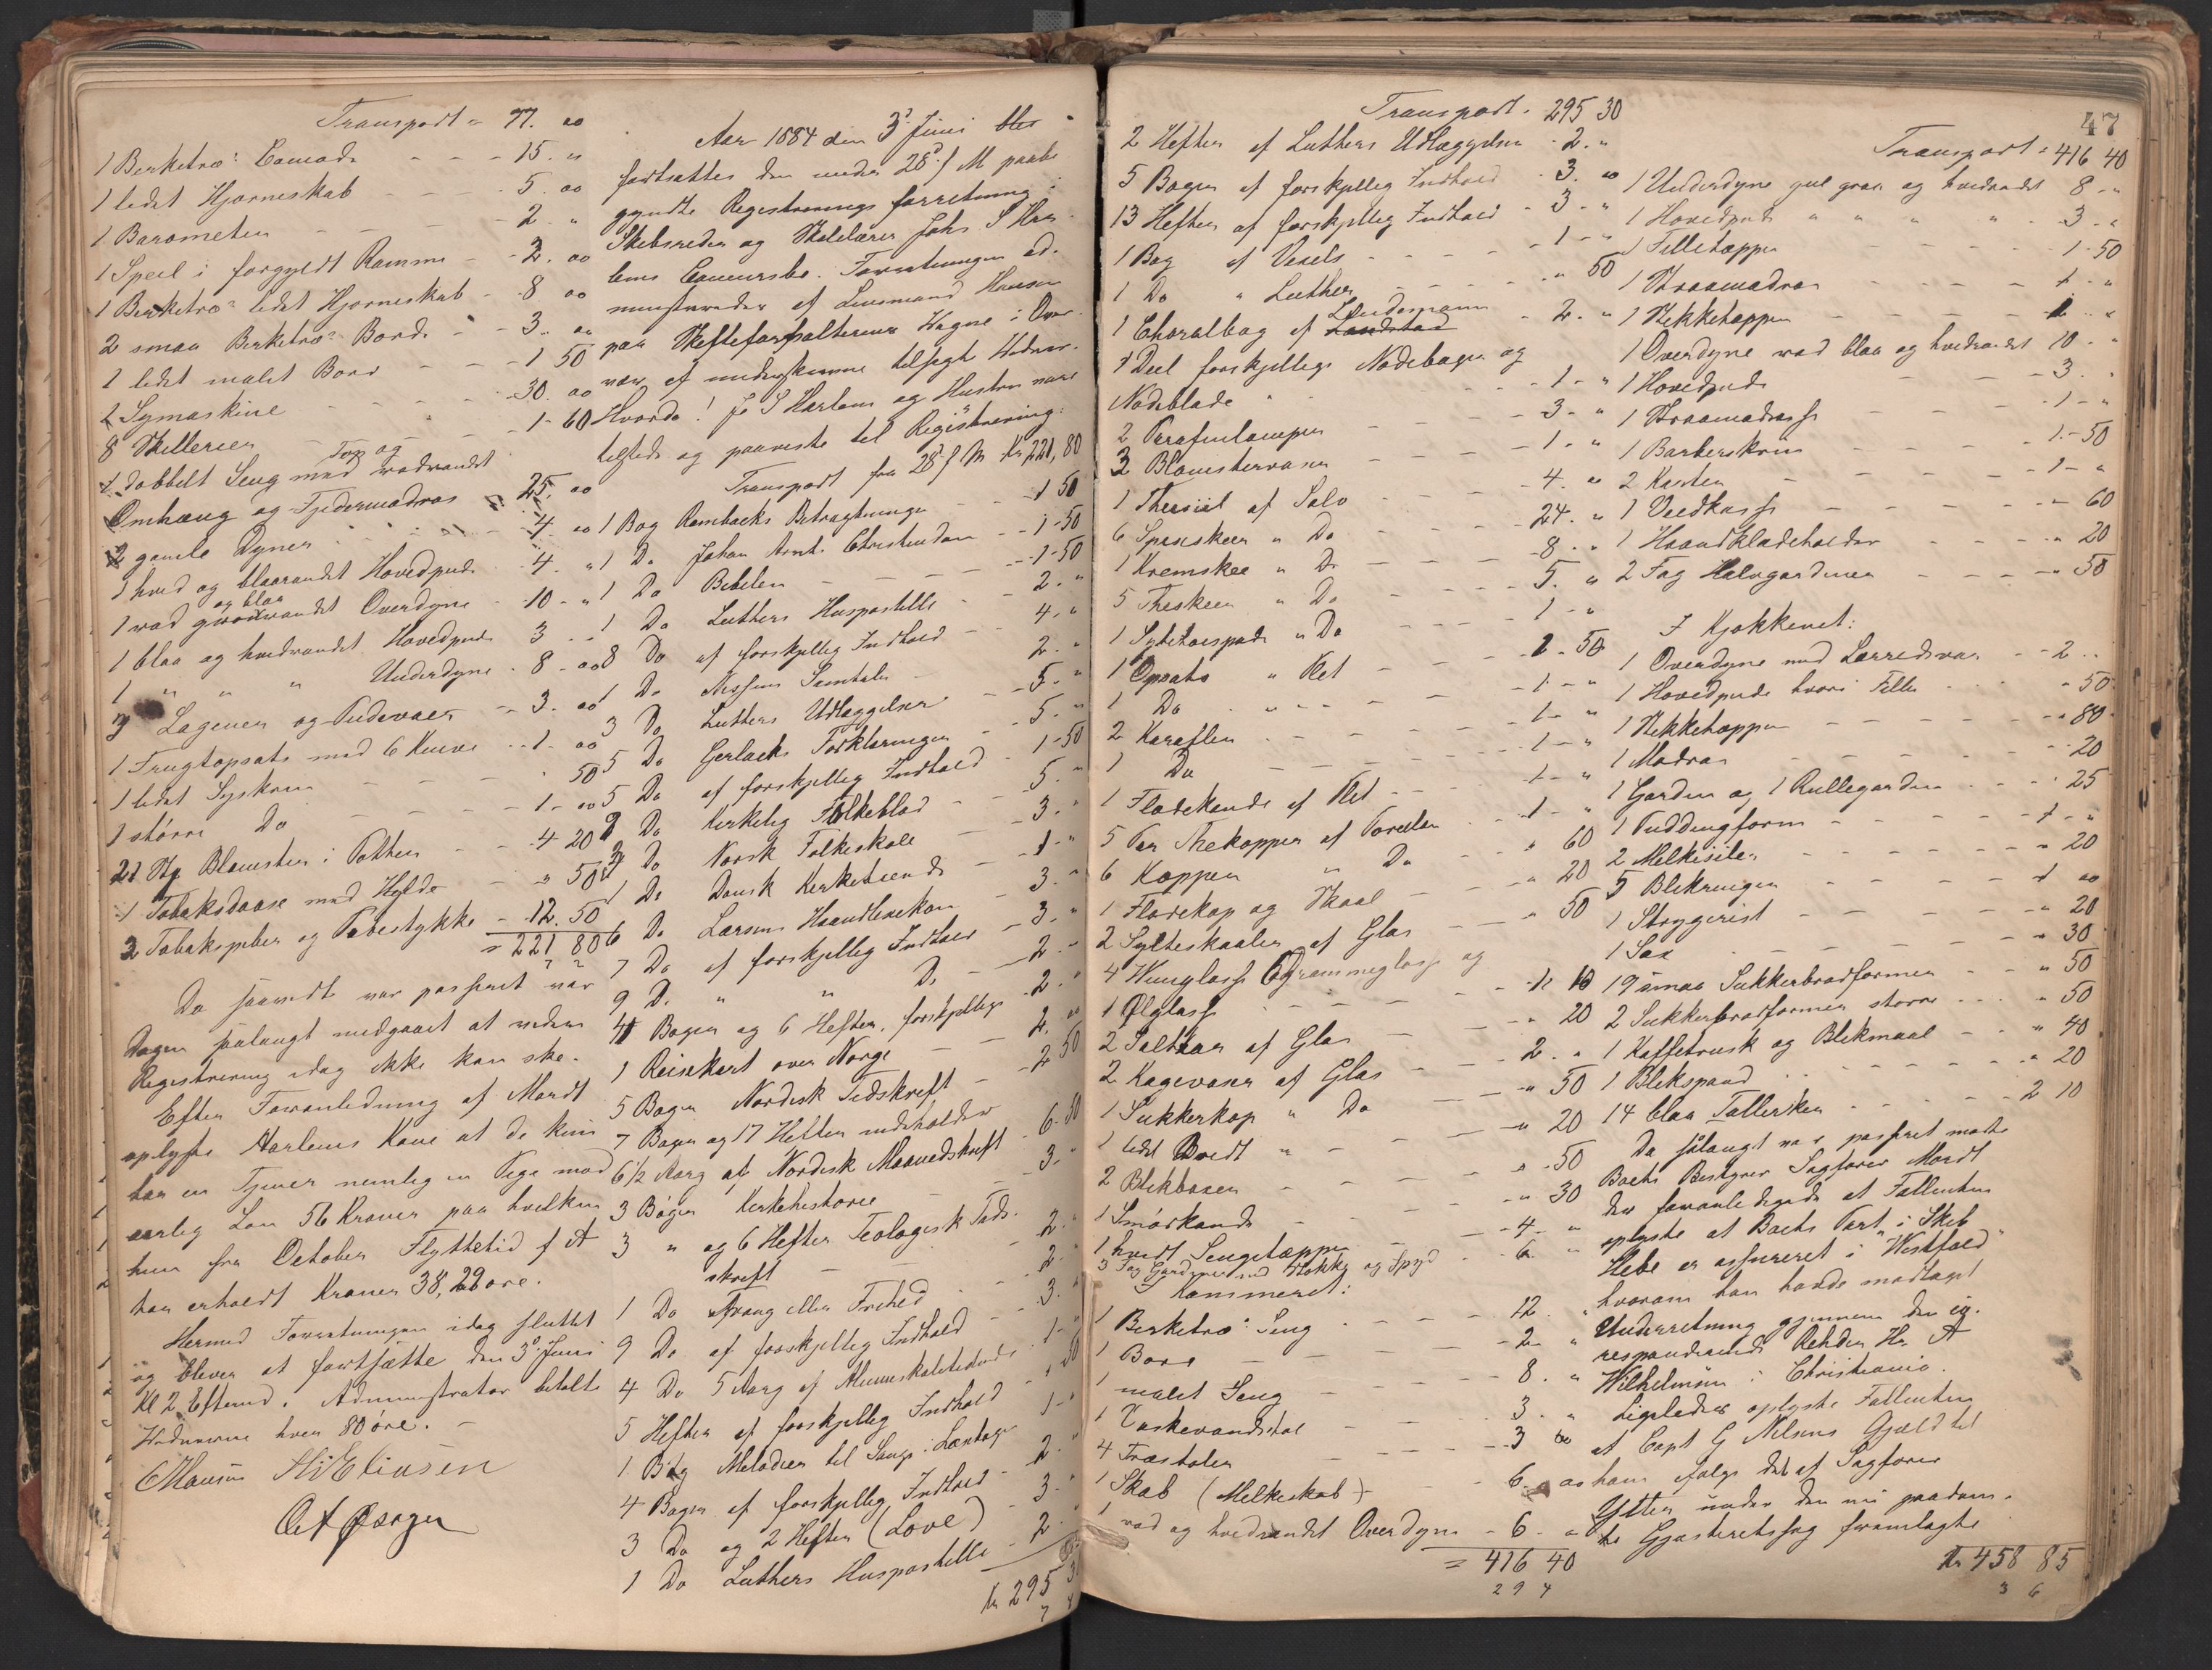 Transport = 77. 00
1 Berketræ's Comode - - - 15. "
1 lidet Hjørneskab - - - 5. 00
1 Barometer - - - 2. "
1 Speil i forgyldt Ramme - - 2. 00
1 Berketræ's lidet Hjørneskab - 8 00
2 smaa Berketræ's Borde - - 3. 00
1 lidet malet Bord - - - 1 50
1 Symaskine - - - 30. 00
8 Skillerier - - - 1-60
1 dobbelt Seng med Top og rødrandet
Omhæng og Fjedermadras 25. 00
2 gamle Dyner - - 4. 00
1 hvid og blaarandet Hovedpude 4. "
1 rød og blaa randet Overdyne - 10 - "
1 blaa og hvidrandet Hovedpude 3 - "
1 " " " Underdyne - 8 - 00
7 Lagener og Pudevaer - 3. 00
1 Frugtopsats med 6 Knive - 1. 00
1 lidet Syskrin - - 50
1 större Do - - - 1 - 00
21 Stp Blomster i Potter - - 4 20
1 Tobaksdaase med Hylde - " 50
3 Tobakspiber og Pibestykke - 12. 50
= 221 80
Da saavidt var passeret var
Dagen saalangt medgaaet at videre
Registrering idag ikke kan ske.
Efter Foranledning af Mordt
oplyste Harlems Kone at de kun
har en Tjener nemlig en Pige med
aarlig Løn 56 Kroner paa hvilken
hun fra October Flyttetid f A
har erholdt Kroner 38,22 øre.
Hermed Forretningen idag sluttet
og bliver at fortsætte den 3d Juni
Kl 2 Efterm. Administrator betalte
Vidnerne hver 80 øre. -
C Hansen H E Eliasen
O A Øsøger
Aar 1884 den 3d Juni blev
fortsattes den under 28d f M paabe
gyndte Registrerings forretning i
Skibsreder og Skolelærer Johs S Har
lems Concursbo. Forretningen ad-
ministreredes af Lensmand Hansen
paa Skifteforvalterens Vegne i Over
vær af undertegnede tilsagte Vidner.
Hvorda! J S Harlem og Hustru vare
tilstede og paaviste til Registrering:
Transport fra 28d f M Kr 221,80
1 Bog Rambachs Betragtninger - 1 50
1 Do Johan Arnt. Christendom - - 1-50
1 Do Bibelen - - - 1-50
1 Do Luthers Huspostille - - 2. "
8 Do af forskjellig Indhold - - 4. "
1 Do Nissens Samtaler - - 2. "
3 Do Luthers Udlæggelser - - 5. "
5 Do Gerlachs Forklaringer - 5. "
5 Do af forskjellig Indhold - 1-50
9 Do Kirkelig Folkeblad - - 5. "
2 Do Norsk Folkeskole - - 3. "
1 Do Dansk Kirketidende - - 1 "
6 Do Larsens Haandlexikon - 3. "
7 Do af forskjellig Indhold - 3. "
9 Do " " Do - 2 - "
4 Bøger og 6 Hefter, forskjellige 2. "
1 Reisekart over Norge - - 2. 00
5 Bøger Nordisk Tidskrift - - 2 50
7 Bøger og 17 Hefter indeholder
6 1/2 Aarg af Nordisk Maanedskrift 6-50
3 Bøger Kirkehistorie - - 3. "
3 " og 6 Hefter Teologisk Tids-
skrift - - 2. "
1 Do Tvang eller Frihed - - 2. "
9 Do af forskjellig Indhold - 3. "
4 Do 5 Aarg af Almueskoletidende 1- "
5 Hefter af forskjellig Indhold " 50
1 Bog Melodier til Sange i Læsebøger 1- "
4 Bøger af forskjellig Indhold - 2. "
3 Do og 2 Hefter (Love) - 3. "
1 Do Luthers Huspostille - 2. "
Kr 295 30
47
Transport. 295 30
2 Hefter af Luthers Udlæggelser - 2. "
5 Bøger af forskjellig Indhold - 3. 00
13 Hefter af forskjellig Indhold - 3 - "
1 Bog af Vexels - - - 1 - "
1 Do " Luther - - - " 50
1 Choralbog af Landstad Lindemann - 2. "
1 Deel forskjellige Nodebøger og
Nodeblade - - - 1 - "
2 Parafinlamper - - 3 - "
3 Blomstervaser - - 1 - "
1 Thersiel af Sølv - - 4. 00
6 Spiseskeer " Do - - 24. "
1 Kremskee " Do - - 8 - "
5 Theskeer " Do - - 5. "
1 Syltetøispade " Do - - 1 - "
1 Opsats " Plet - - 1 - 50
1 Do " - - - 1 - "
2 Karafler - - - 1 - "
1 Do - - - 1 - "
1 Flødekande af Plet - - 1 - "
5 Par Thekopper af Porcelæn - 1 - "
6 Kopper " Do - - " 60
1 Flødekop og Skaal - - " 20
2 Sylteskaaler af Glas - - " 50
4 Vinglass 6 Drammeglass og
1 Ølglass - - - 1 10
2 Saltkar af Glas - - " 20
2 Kagevaser af Glas - - 2. "
1 Sukkerkop " Do - - " 50
1 lidet Bredt " - - " 20
2 Blikbøsser - - " 50
1 Smørkande - - " 30
1 hvidt Sengetæppe - - 4 - "
3 Fag Gardiner med Stokke og Spyd - 6. "
Kammeret:
1 Berketræ's Seng - - 12. "
1 Bord - - - 2 - "
1 malet Seng - - 8. "
1 Vaskevandstol - - 3. "
4 Træstoler - - 3 00
1 Skab (Melkeskab) - - 6. 00
1 rød og hvidrandet Overdyne - 6. 00
= 416 40
Transport = 416 40
1 Underdyne gul graa og hvidrandet 8 - "
1 Hovedpude " " " " 3 - "
1 Filletæppe - - 1-50
1 Straamadras - - 1 - "
1 Stikketæppe - - 1 - "
1 Overdyne rød blaa og hvidrandet 10. "
1 Hovedpude - - - 3. "
1 Straamadrass - - 1 - "
1 Barberskrin - - 1-50
2 Kaster - - - 1 - "
1 Vedkasse - - - " 60
1 Haandklædeholder - - " 20
2 Fag Halvgardiner - - " 50
I Kjøkkenet:
1 Overdyne med Lærredsvar - - 2 - "
1 Hovedpude hvori Filler - - " 50
1 Stikketæppe - - " 80
1 Madras - - " 20
1 Gardin og 1 Rullegardin - - " 25
1 Puddingform - - 1 - "
2 Melkesiler - - " 20
5 Blikringer - - 1 00
1 Strygerist - - " 20
1 Sax - - " 30
19 smaa Sukkerbrødformer - - " 50
2 Sukkerbrødformer større - - " 50
1 Kaffetrusk og Blikmaal - - " 40
1 Blikspand - - " 20
14 blaa Tallerken - - 2 10
Da sålangt var passeret mødte
Boets Bestyrer Sagfører Mordt
der foranledigede at Fallenten
oplyste at Boets Part i Skib
Hebe er assureret i "Vestfold"
hvorom han havde modtaget
Underretning gjennem den co-
responderende Rehder Hr A
Wilhelmsen i Christiania.
Ligeledes oplyste Fallenten
at Capt G Nilsens Gjæld til
ham ifølge det af Sagfører
Ytter under den nu paadøm-
te Gjæsteretssag fremlagte
Kr 458 85